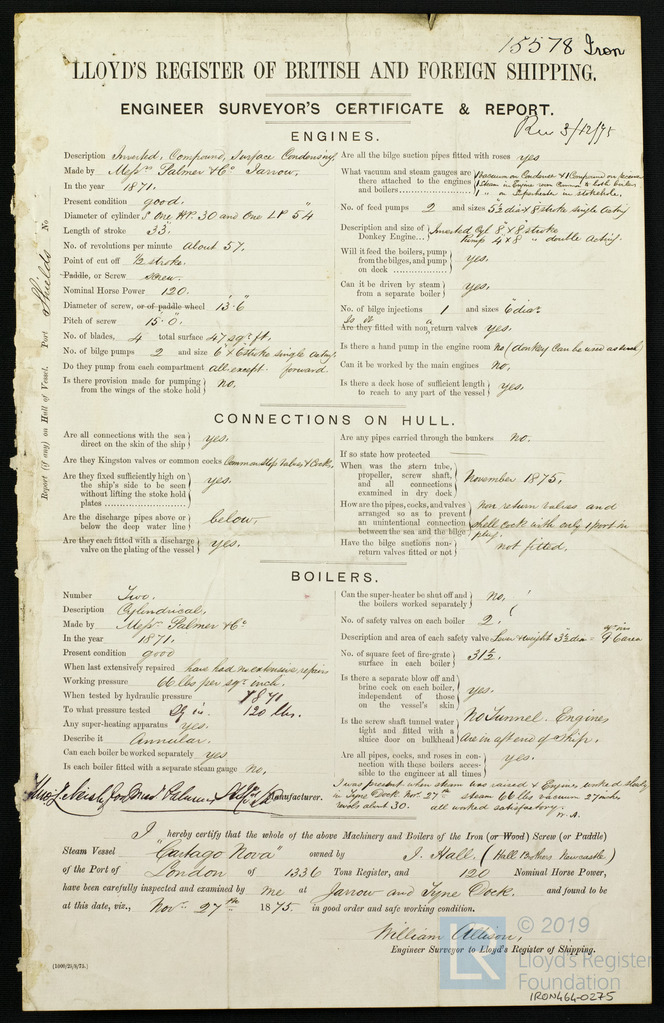 15578 Iron
LLOYD'S REGISTER OF BRITISH AND FOREIGN SHIPPING.
ENGINEER SURVEYOR'S CERTIFICATE & REPORT.
Rec 3/12/75
Report (if any) on Hull of Vessel. Port Shields No
ENGINES.
Description Inverted, Compound, Surface Condensing
Made by Messrs Palmer & Co Jarrow.
In the year 1871.
Present condition good.
Diameter of cylinders One HP. 30 and One LP 54"
Length of stroke 33.
No. of revolutions per minute about 57.
Point of cut off ½ stroke
Paddle, or Screw Screw.
Nominal Horse Power 120.
Diameter of screw, or of paddle wheel 13.6"
Pitch of screw 15.0.
No. of blades, 4 total surface 47 sqr ft.
No. of bilge pumps 2 and size 6" x 6 stroke single acting
Do they pump from each compartment all except forward
Is there provision made for pumping from the wings of the stoke hold } no.
Are all the bilge suction pipes fitted with roses yes
What vacuum and steam gauges are there attached to the engines and boilers { 1 Vacuum on Condenser & 1 Compound on
1 Steam in Engine room common to both boilers
1 " on in stokehole.
No. of feed pumps 2 and sizes 5½ dia x 8 stroke single acting
Description and size of Donkey Engine { Inverted Cyl 8 x 8 stroke
Pump 4 x 8 " double acting.
Will it feed the boilers, pump from the bilges, and pump on deck } yes.
Can it be driven by steam from a separate boiler } yes.
No. of bilge injections 1 and sizes 6 dia.
Are they fitted with non return valves yes.
Is there a hand pump in the engine room no (donkey can be used as such)
Can it be worked by the main engines no,
Is there a deck hose of sufficient length to reach to any part of the vessel } yes.
CONNECTIONS ON HULL.
Are all connections with the sea direct on the skin of the ship } yes.
Are they Kingston valves or common cocks Common Stop Valves & Cocks,
Are they fixed sufficiently high on the ship's side to be seen without lifting the stoke hold plates } yes.
Are the discharge pipes above or below the deep water line } below,
Are they each fitted with a discharge valve on the plating of the vessel } yes.
Are any pipes carried through the bunkers no.
If so state how protected
When was the stern tube, propeller, screw shaft, and all connections examined in dry dock } November 1875.
How are the pipes, cocks, and valves arranged so as to prevent an unintentional connection between the sea and the bilge } non return valves and shell cock with only 1 port in plug.
Have the bilge suctions non-return valves fitted or not } not fitted.
BOILERS.
Number Two.
Description Cylindrical.
Made by Messrs Palmer & Co
In the year 1871.
Present condition good
When last extensively repaired have had no extensive repairs
Working pressure 66 lbs per sqr inch.
When tested by hydraulic pressure 1871
To what pressure tested Sq in. 120 lbs.
Any super-heating apparatus yes.
Describe it Annular.
Can each boiler be worked separately yes
Is each boiler fitted with a separate steam gauge No,
Can the super-heater be shut off and the boilers worked separately } No,
No. of safety valves on each boiler 2.
Description and area of each safety valve Lever & weight 3½ dia = 9.6 area
No. of square feet of fire-grate surface in each boiler } 31½.
Is there a separate blow off and brine cock on each boiler, independent of those on the vessel's skin } yes.
Is the screw shaft tunnel water tight and fitted with a sluice door on bulkhead } No Tunnel. Engines are in aft end of Ship.
Are all pipes, cocks, and roses in connection with these boilers accessible to the engineer at all times } yes.
I was present when steam was raised & Engines worked shortly
in Tyne Dock. Nov. 27th steam 66 lbs vacuum 27 inches
revols about 30. all worked satisfactory. W.A.
Manufacturer.
I hereby certify that the whole of the above Machinery and Boilers of the Iron (or Wood) Screw (or Paddle)
Steam Vessel "Cartago Nova" owned by J. Hall. (Hall Brothers Newcastle)
of the Port of London of 1336 Tons Register, and 120 Nominal Horse Power,
have been carefully inspected and examined by me at Jarrow and Tyne Dock. and found to be
at this date, viz., Novr 27th 1875. in good order and safe working condition.
William Allison,
Engineer Surveyor to Lloyd's Register of Shipping.
(1000/25/8/75.)
© 2019
LR Lloyd's Register
Foundation
IRON464-0275